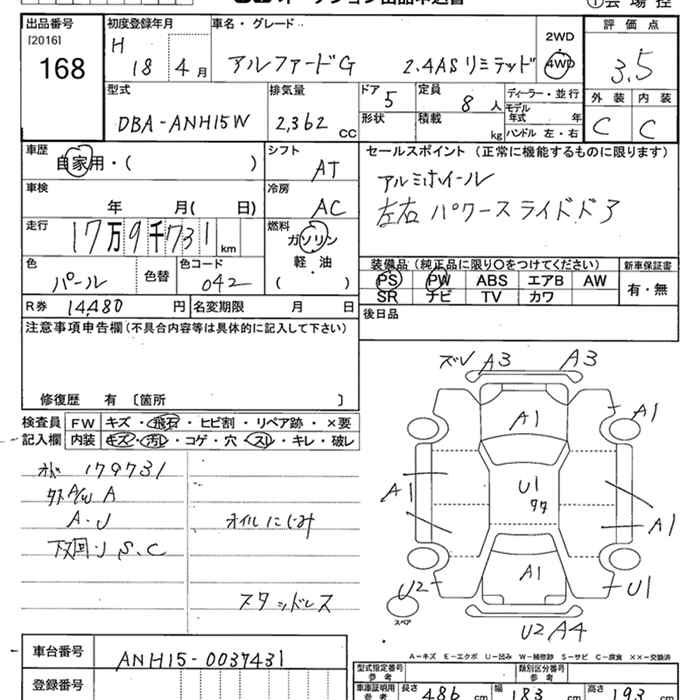 出品番号 初度登録年月 車名・グレード 評価点
[2016] H 2WD
168 18年 4月 アルファードG 2.4ASリミテッド 4WD 3.5
型式 排気量 ドア 定員 ディーラー・並行 外装 内装
DBA-ANH15W 2,362 CC 5 8人 モデル年式 年 C C
形状 積載 kg ハンドル 左・右
車歴 シフト セールスポイント (正常に機能するものに限ります)
自家用・( ) AT
車検 冷房 アルミホイール
年 月( 日) AC 左右パワースライドドア
走行 燃料
17万9千731km ガソリン
色 色替 色コード 軽・油 装備品 (純正品に限り○をつけてください) 新車保証書
パール 042 ( ) PS PW ABS エアB AW 有・無
SR ナビ TV カワ
R券 14,480円 名変期限 月 日 後日品
注意事項申告欄 (不具合内容等は具体的に記入して下さい)
修復歴 有 〔箇所 〕
検査員 FW キズ・飛石・ヒビ割・リペア跡・×要
記入欄 内装 キズ・汚レ・コゲ・穴・スレ・キレ・破レ
179731
A
A・J オイルにじみ
下回・J S.C
スタッドレス
ズレ A3 A3
A1 A1
A1 U1 A1
U2 A1 U1
スペア
U2 A4
A−キズ E−エクボ U−凹み W−補修跡 S−サビ C−腐食 ××−交換済
車台番号 ANH15-0037431
型式指定番号 参考 類別区分番号 参考
登録番号 車庫証明用 参考 長さ 486cm 幅 183cm 高さ 193cm